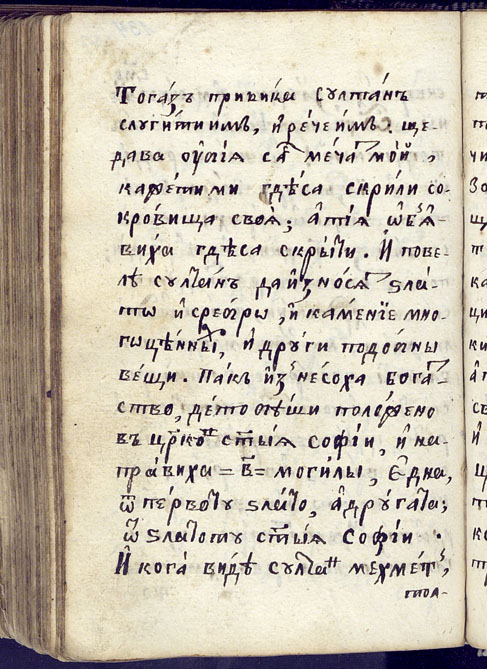 Тога́зъ приви́ка Султа́нъ
слуги́тиимъ, и҆ рече́имъ. ще
дава ѹ҆б҆ія сас меча́т мо́й,
каже́тими гдѣ́са скри́ли со-
кро́вища своя́; а҆ті́я ѡ҆б҆я́-
виха гдѣ́са скры́ти. И҆ пове-
лѣ̀ султа́нъ даи҆зно́сят ѕла́-
то и҆ сребро, и҆ ка́менїе мно-
гоцѣ́нных, и҆ дру́ги подобны
ве́щи. Па́къ и҆з несоха бога́т-
ство, дето бѣ́ши положено
въ цр҃кон ст҃ы́я Софі́и, и҆ на-
пра́виха = в҃ = моги́лы, є҆дна,
ѿ пе́рвото ѕла́то, а҆ дру́гата;
ѿ ѕла́тото ст҃ы́я Софі́и.
И҆ кога̀ ви́дѣ султан мехме́т,
тол-